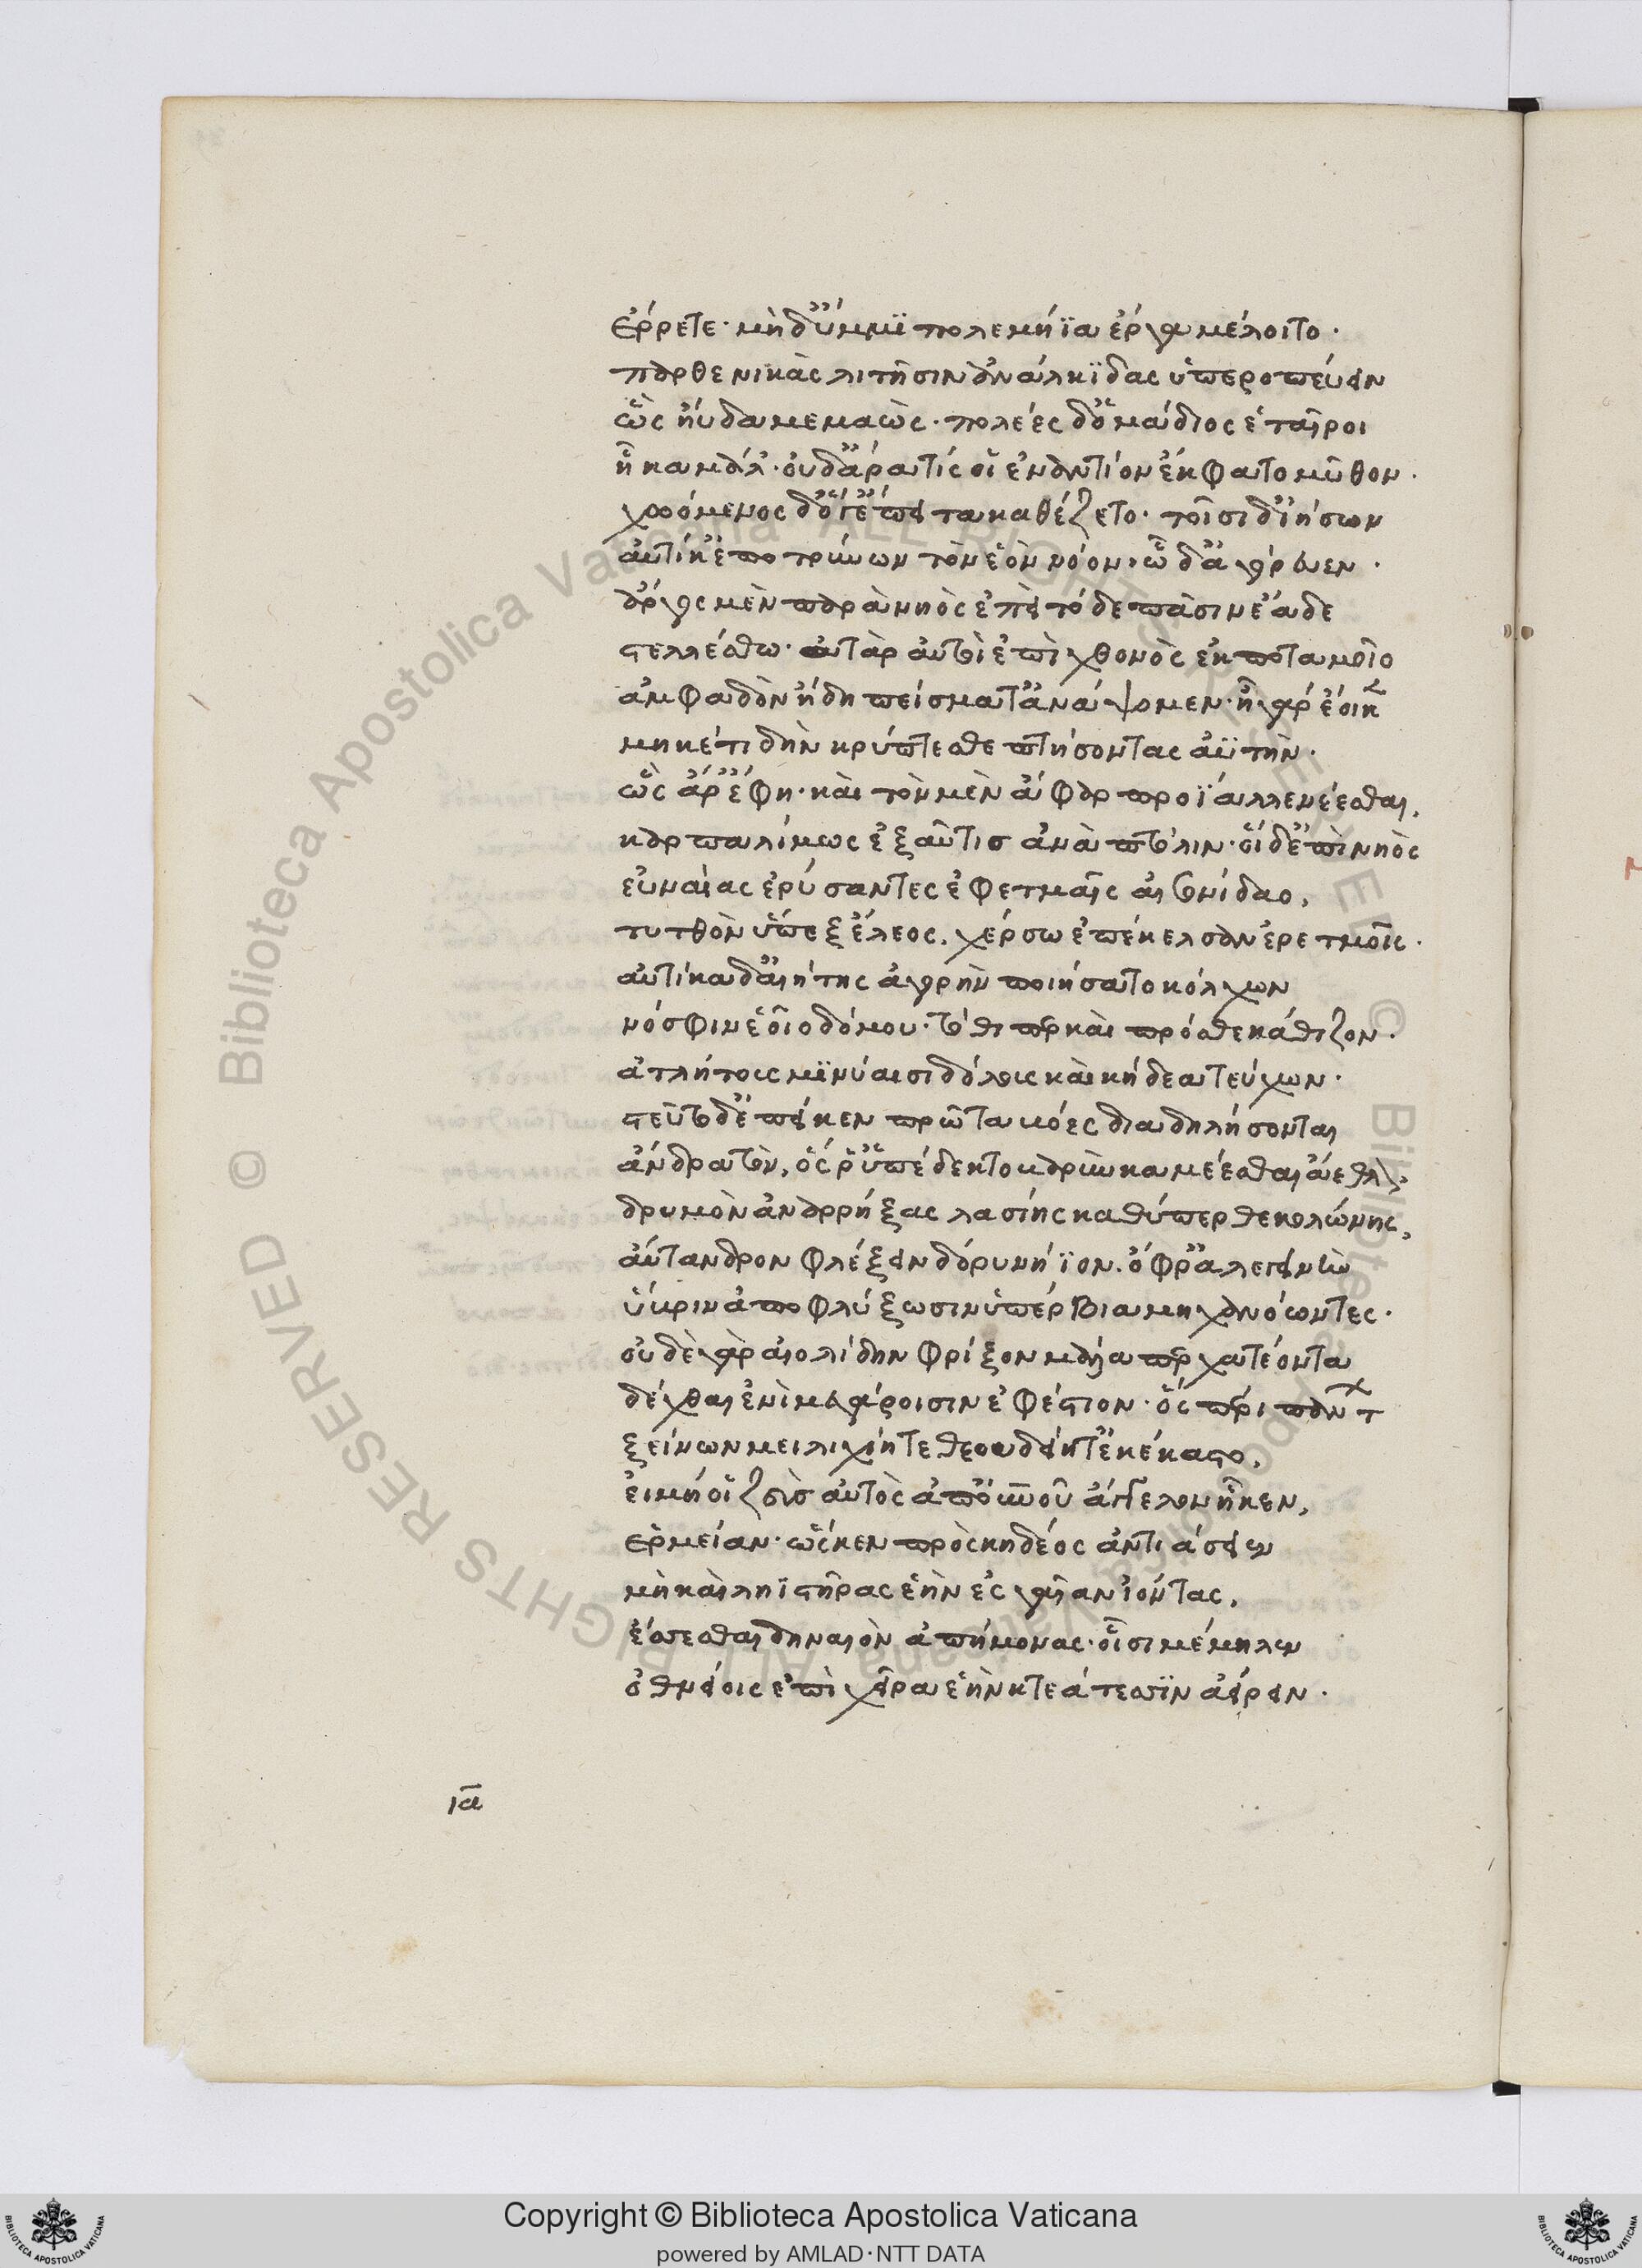 ἔρρετε· μὴ δ' ὔμμϊ πολεμήϊα ἔργα μέλοιτο·
παρθενικὰς λιτῆσιν ἀνάλκϊδας ὑπεροπεύειν
ὣς ηὔδα μεμαὼς· πολέες δ' ὁμαίδιος ἑταῖροι
ἦκα μάλ'· οὐδ' ἄρα τίς οἱ ἐναντίον ἔκφατο μῦθον·
χωόμενος δ' ὅγ' ἔπειτα καθέζετο· τοῖσι δ' ἰήσων
αὐτίκ' ἐποτρύνων τὸν ἑὸν νόον· ὧδ' ἀγόρευεν·
ἄργος μὲν παρὰ νηὸς ἐπεὶ τόδε πᾶσιν ἕαδε
στελλέσθω· αὐτὰρ αὐτοὶ ἐπὶ χθονὸς ἐκ ποταμοῖο
ἀμφαδὸν ἤδη πείσματ' ἀνάψομεν· ἦ γὰρ ἔοικε
μηκέτι δὴν κρύπτεσθε πτήσοντας ἀϋτὴν·
ὣς ἄρ' ἔφη· καὶ τὸν μὲν ἄφαρ προϊάλλε νέεσθαι,
καρπαλίμως ἐξαῦτισ ἀνὰ πτόλιν· οἱ δ' ἐπὶ νηὸς
εὐναίας ἐρύσαντες ἐφετμαῖς αἰσονίδαο,
τυτθὸν ὑπὲξ ἕλεος, χέρσω ἐπέκελσαν ἐρετμοῖς·
αὐτίκα δ' αἰήτης ἀγορὴν ποιήσατο κόλχων
νόσφιν ἑοῖο δόμου· τόθι περ καὶ πρόσθε κάθιζον·
ἀτλήτους μϊνύαισι δόλους καὶ κήδεα τεύχων·
στεῦτο δ' ἐπεί κεν πρῶτα βόες διαδηλήσονται
ἄνδρα τὸν, ὅς ῥ' ὑπέδεκτο βαρὺν καμέεσθαι ἄεθλον,
δρυμὸν ἀναρρήξας λασίης καθύπερθε κολώνης,
αὔτανδρον φλέξειν δόρυ νήϊον· ὄφρ' ἀλεγεινὴν
ὕβριν ἀποφλύξωσιν ὑπέρβια μηχανόωντες·
οὐδὲ γὰρ αἰολίδην φρίξον μάλα περ χατέοντα
δέχθαι ἐνὶ μεγάροισιν ἐφέστιον· ὅς περὶ πάντων
ξείνων μειλιχίη τε θεουδείη τ' ἐκέκαστο,
εἰ μή οἱ ζεὺσ αὐτὸς ἀπ' οὐρανοῦ ἄγγελον ἧκεν,
ἑρμείαν· ὥς κεν πρὸς κηδέος ἀντιάσειεν
μὴ καὶ ληϊστῆρας ἑὴν ἐς γαῖαν ἰόντας,
ἔσσεσθαι δηναιὸν ἀπήμονας· οἷσι μέμηλεν
ὀθνείοις ἐπὶ χεῖρα ἑὴν κτεάτεσσϊν ἀείρειν·
ια
Copyright © Biblioteca Apostolica Vaticana
powered by AMLAD·NTT DATA